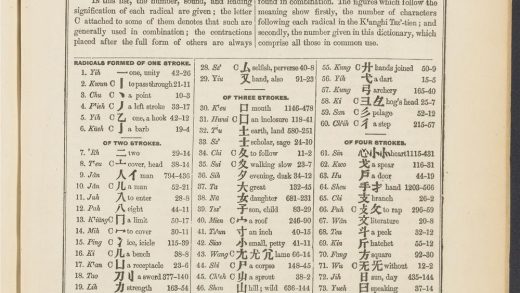 In this list, the number, sound, and
of each radical are given; the letter
C attached to some of them denotes that such are
generally used in combination; the contractions
placed after the full form of others are always
found in combination. The figures which follow the
meaning show firstly, the number of characters
following each radical in the K'anghi Tsz'-tien; and
secondly, the number given in this dictionary, which
comprise all those in common use.
RADICALS FORMED OF ONE STROKE.
1. Yih 一 one, unity 42-26
2. Kwun C 丨 to pass through 21-11
3. Chu C 丶 a point 10-3
4. P'ieh C 丿 a left stroke 33-17
5. Yih C 乙 one, a hook 42-12
6. Küeh C 亅 a barb 19-4
OF TWO STROKES.
7. 'Rh 二 two 29-14
8. T'eu C 亠 cover, head 38-14
9. Jăn 人亻 man 794-436
10. Jăn C 儿 a man 52-21
11. Juh 入 to enter 28-8
12. Pah 八 eight 44-11
13. K'iung C 冂 a limit 50-17
14. Mih C 冖 to cover 30-11
15. Ping 冫 ice, icicle 115-39
16. Ki 几 a bench 38-8
17. K'an C 凵 a receptacle 23-6
18. Tao 刀刂 a sword 377-140
19. Lih 力 strength 163-54
28. Sz' C 厶 selfish, perverse 40-8
29. Yiu 又 hand, also 91-23
OF THREE STROKES.
30. K'eu 口 mouth 1146-478
31. Hwui C 囗 an inclosure 119-41
32. T'u 土 earth, land 580-251
33. Sz' 士 scholar, sage 24-10
34. Chi C 夂 to follow 11-2
35. Sui C 夊 walking slow 23-7
36. Sih 夕 evening, dusk 34-12
37. Ta 大 great 132-45
38. Nü 女 daughter 681-231
39. Tsz' 子 son, child 83-29
40. Mien C 宀 a roof 246-90
41. Ts'un 寸 an inch 40-15
42. Siao 小 small, petty 41-11
43. Wang C 尢尣兀 lame 66-14
44. Shi C 尸 a corpse 148-45
45. Ch'eh C 屮 a sprout 38-2
46. Shan 山 hill; wild 636-144
55. Kung C 廾 hands joined 50-9
56. Yih C 弋 a dart 15-5
57. Kung 弓 archery 165-40
58. Ki C 彐彑 hog's head 25-7
59. San C 彡 pelage 52-12
60. Ch'ih C 彳 a step 215-57
OF FOUR STROKES.
61. Sin 心忄㣺 heart 1115-431
62. Kwo C 戈 a spear 116-31
63. Hu C 戶 a door 44-19
64. Sheu 手扌才 hand 1203-566
65. Chi C 支 branch 26-2
66. Puh C 攴攵 to rap 296-59
67. Wăn 文 literature 20-8
68. Teu C 斗 a peck 32-12
69. Kin 斤 hatchet 55-12
70. Fang 方 square 92-30
71. Wu C 无旡 without 12-2
72. Jih 日 sun, day 435-144
73. Yueh 曰 speaking 37-14